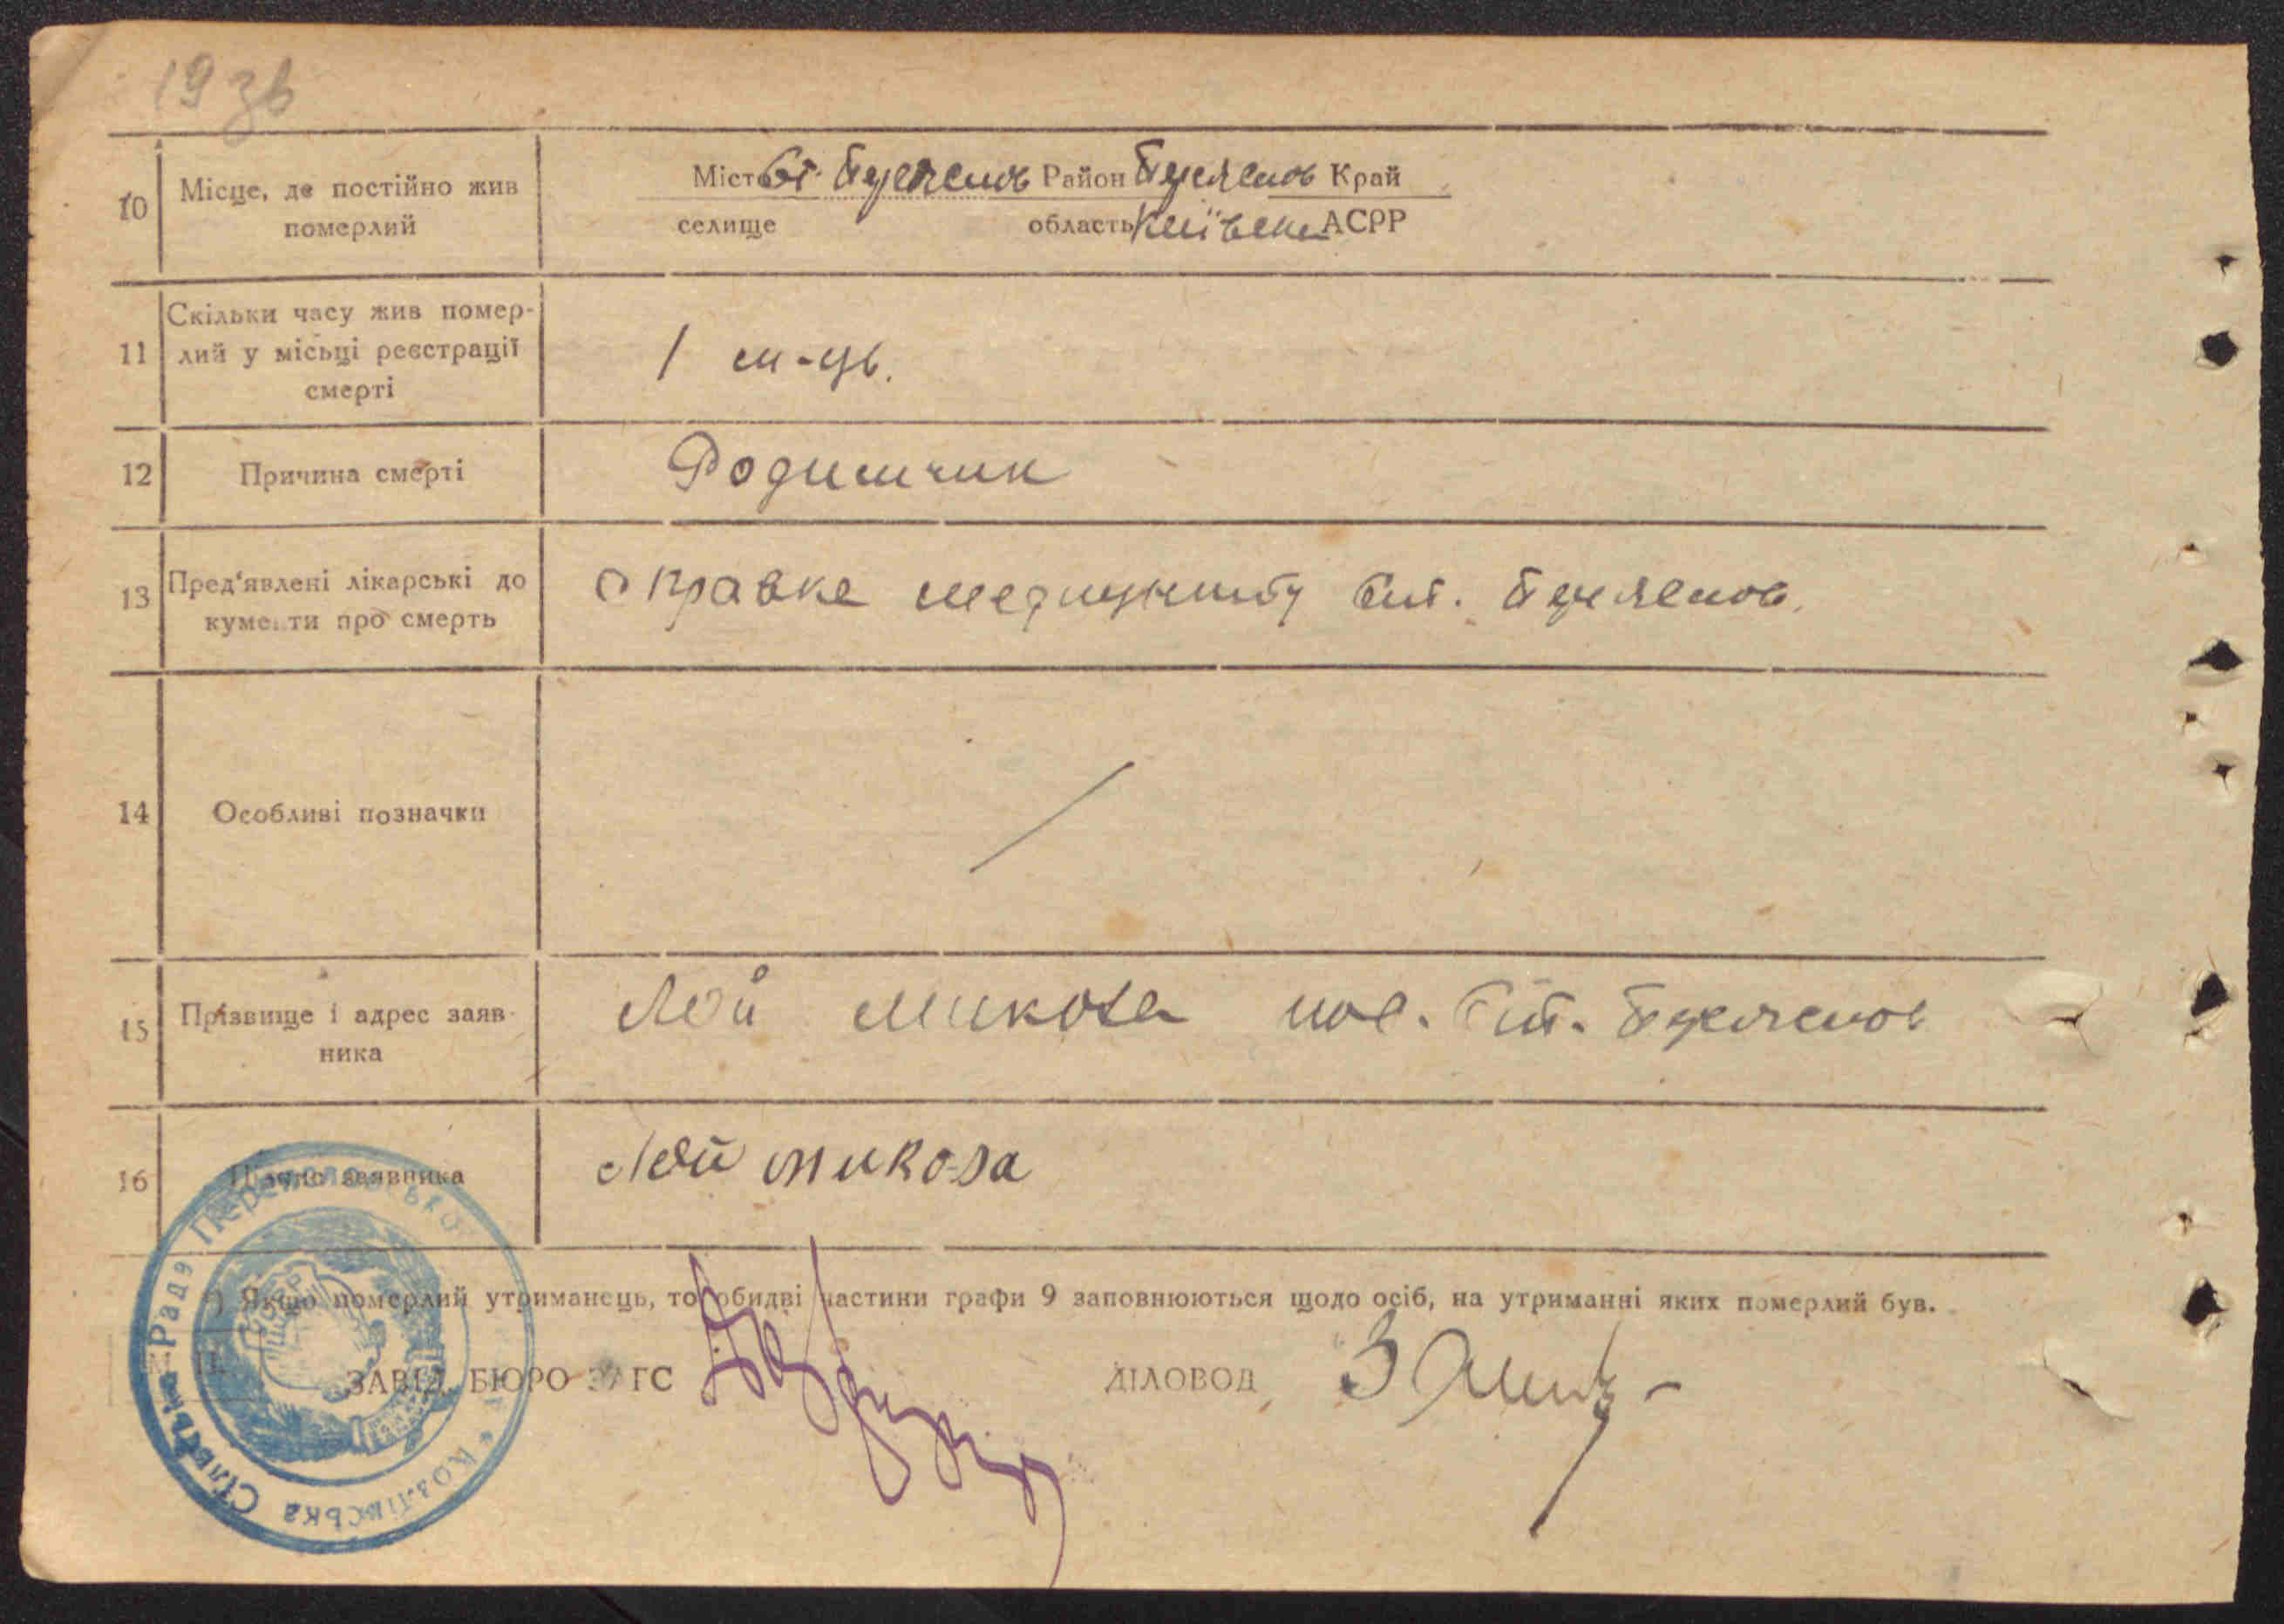 19 зв
10 Місце, де постійно жив померлий
Місто Ст. Переяслов Район Переяслов Край
селище область Київська АСРР
11 Скільки часу жив помер-
лий у місьці реєстрації
смерті
1 м-ць.
12 Причина смерті
Родимчик
13 Пред'явлені лікарські до
кументи про смерть
Справка медпункту Ст. Переяслов.
14 Особливі позначки
/
15 Прізвище і адрес заяв-
ника
Лой Микола Ст. Переяслов
16 Підпис заявника
Лой микола
*) Якщо померлий утриманець, то обидві частини графи 9 заповнюються щодо осіб, на утриманні яких померлий був.
М. П. ЗАВІД. БЮРО ЗАГС
ДІЛОВОД
Козлівська Сільська Рада Переяславського
УСРР